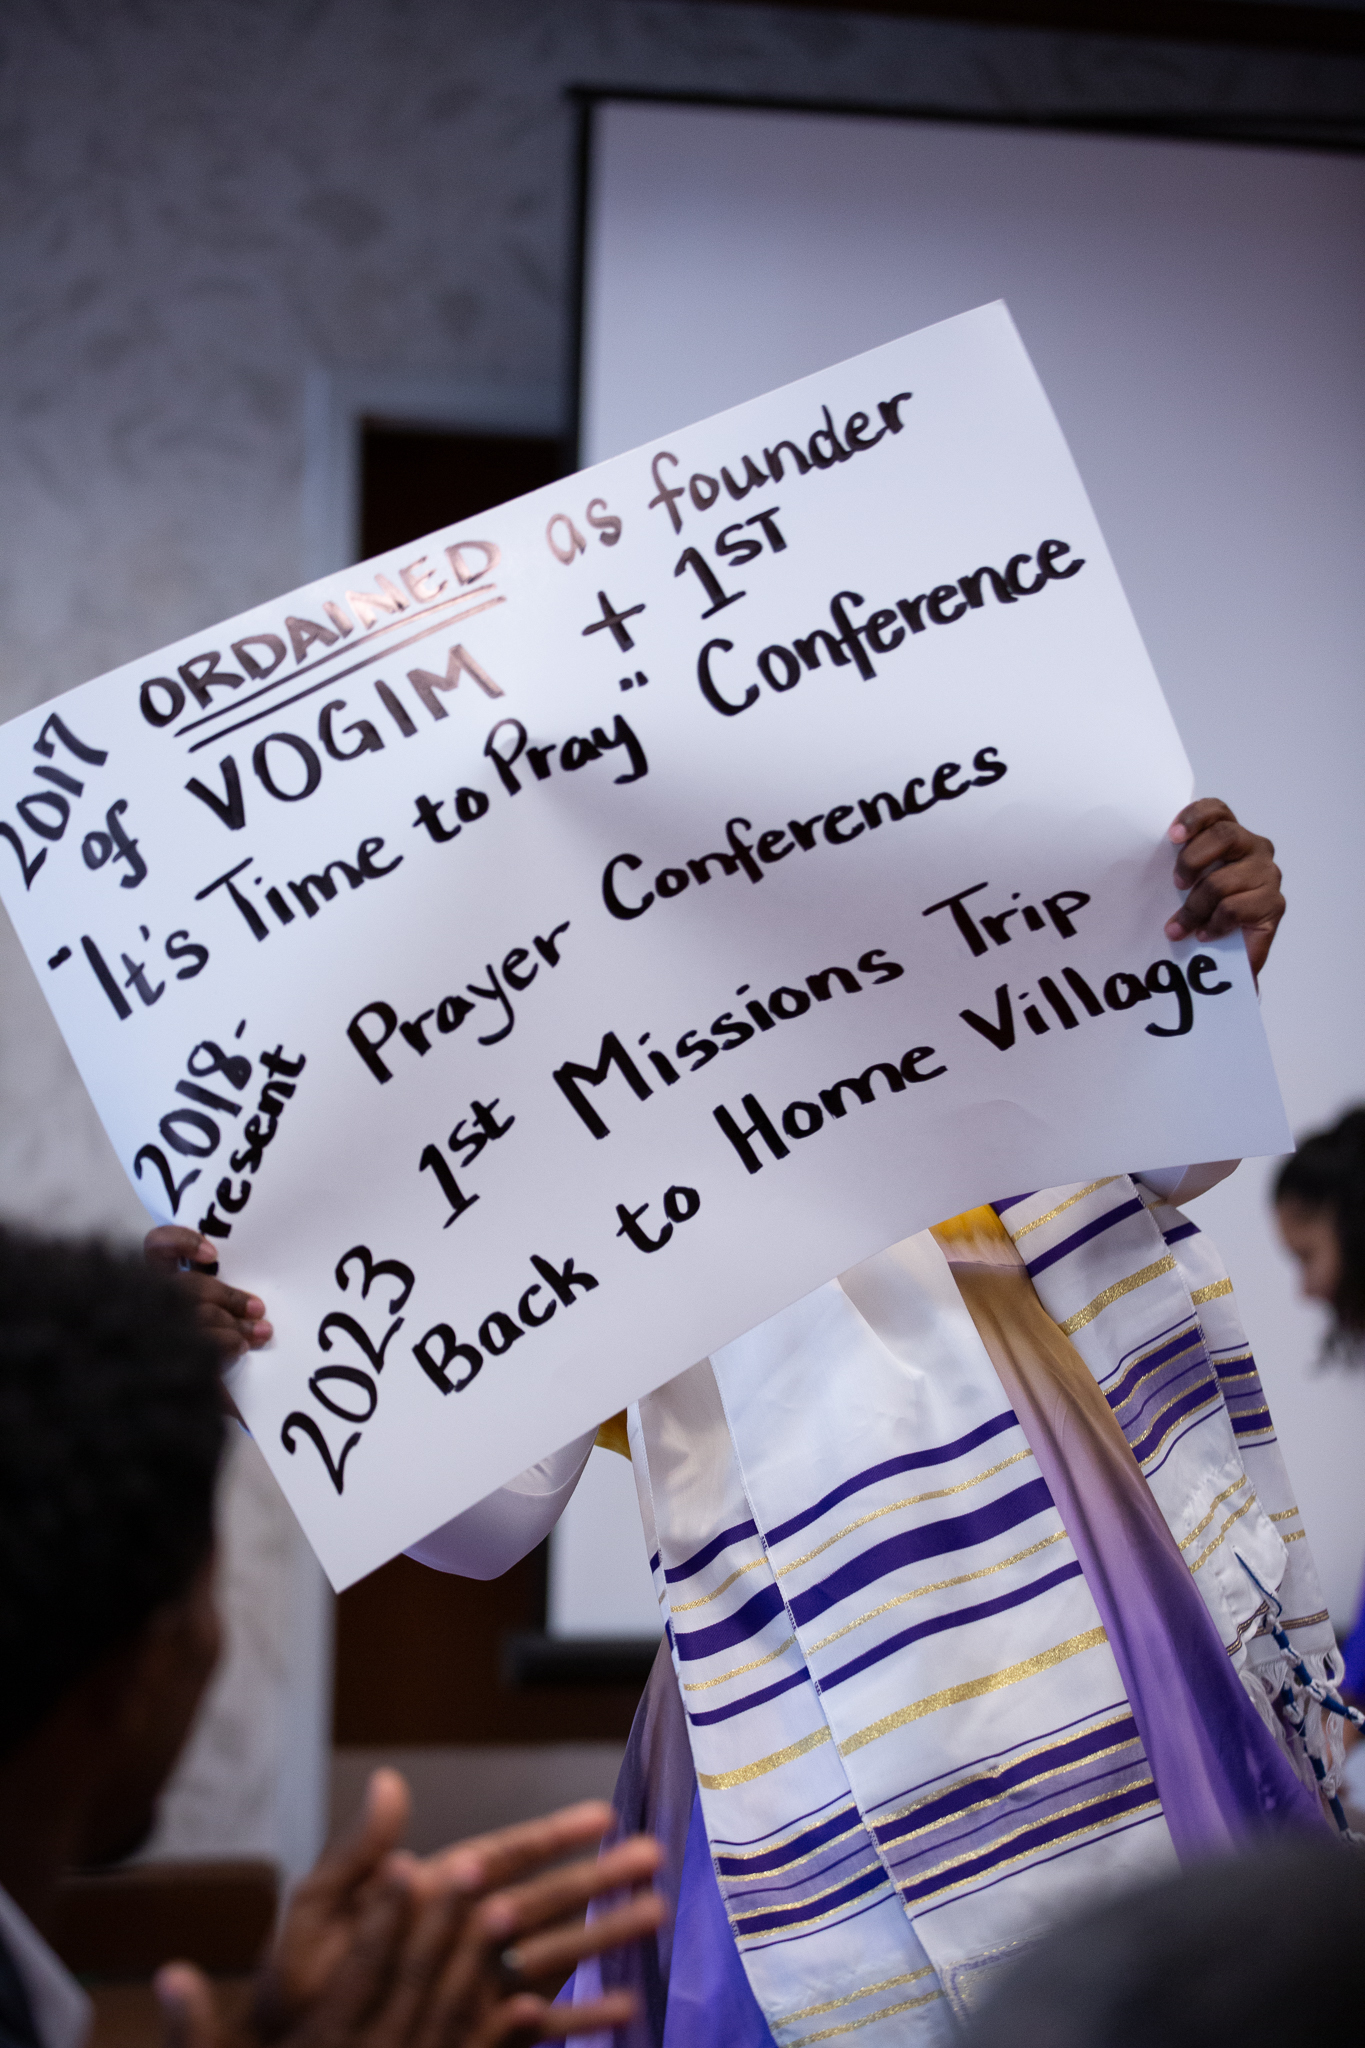 2017 ORDAINED as founder
of VOGIM + 1ST
"It's Time to Pray" Conference
2018- Prayer Conferences
resent
2023 1st Missions Trip
Back to Home Village